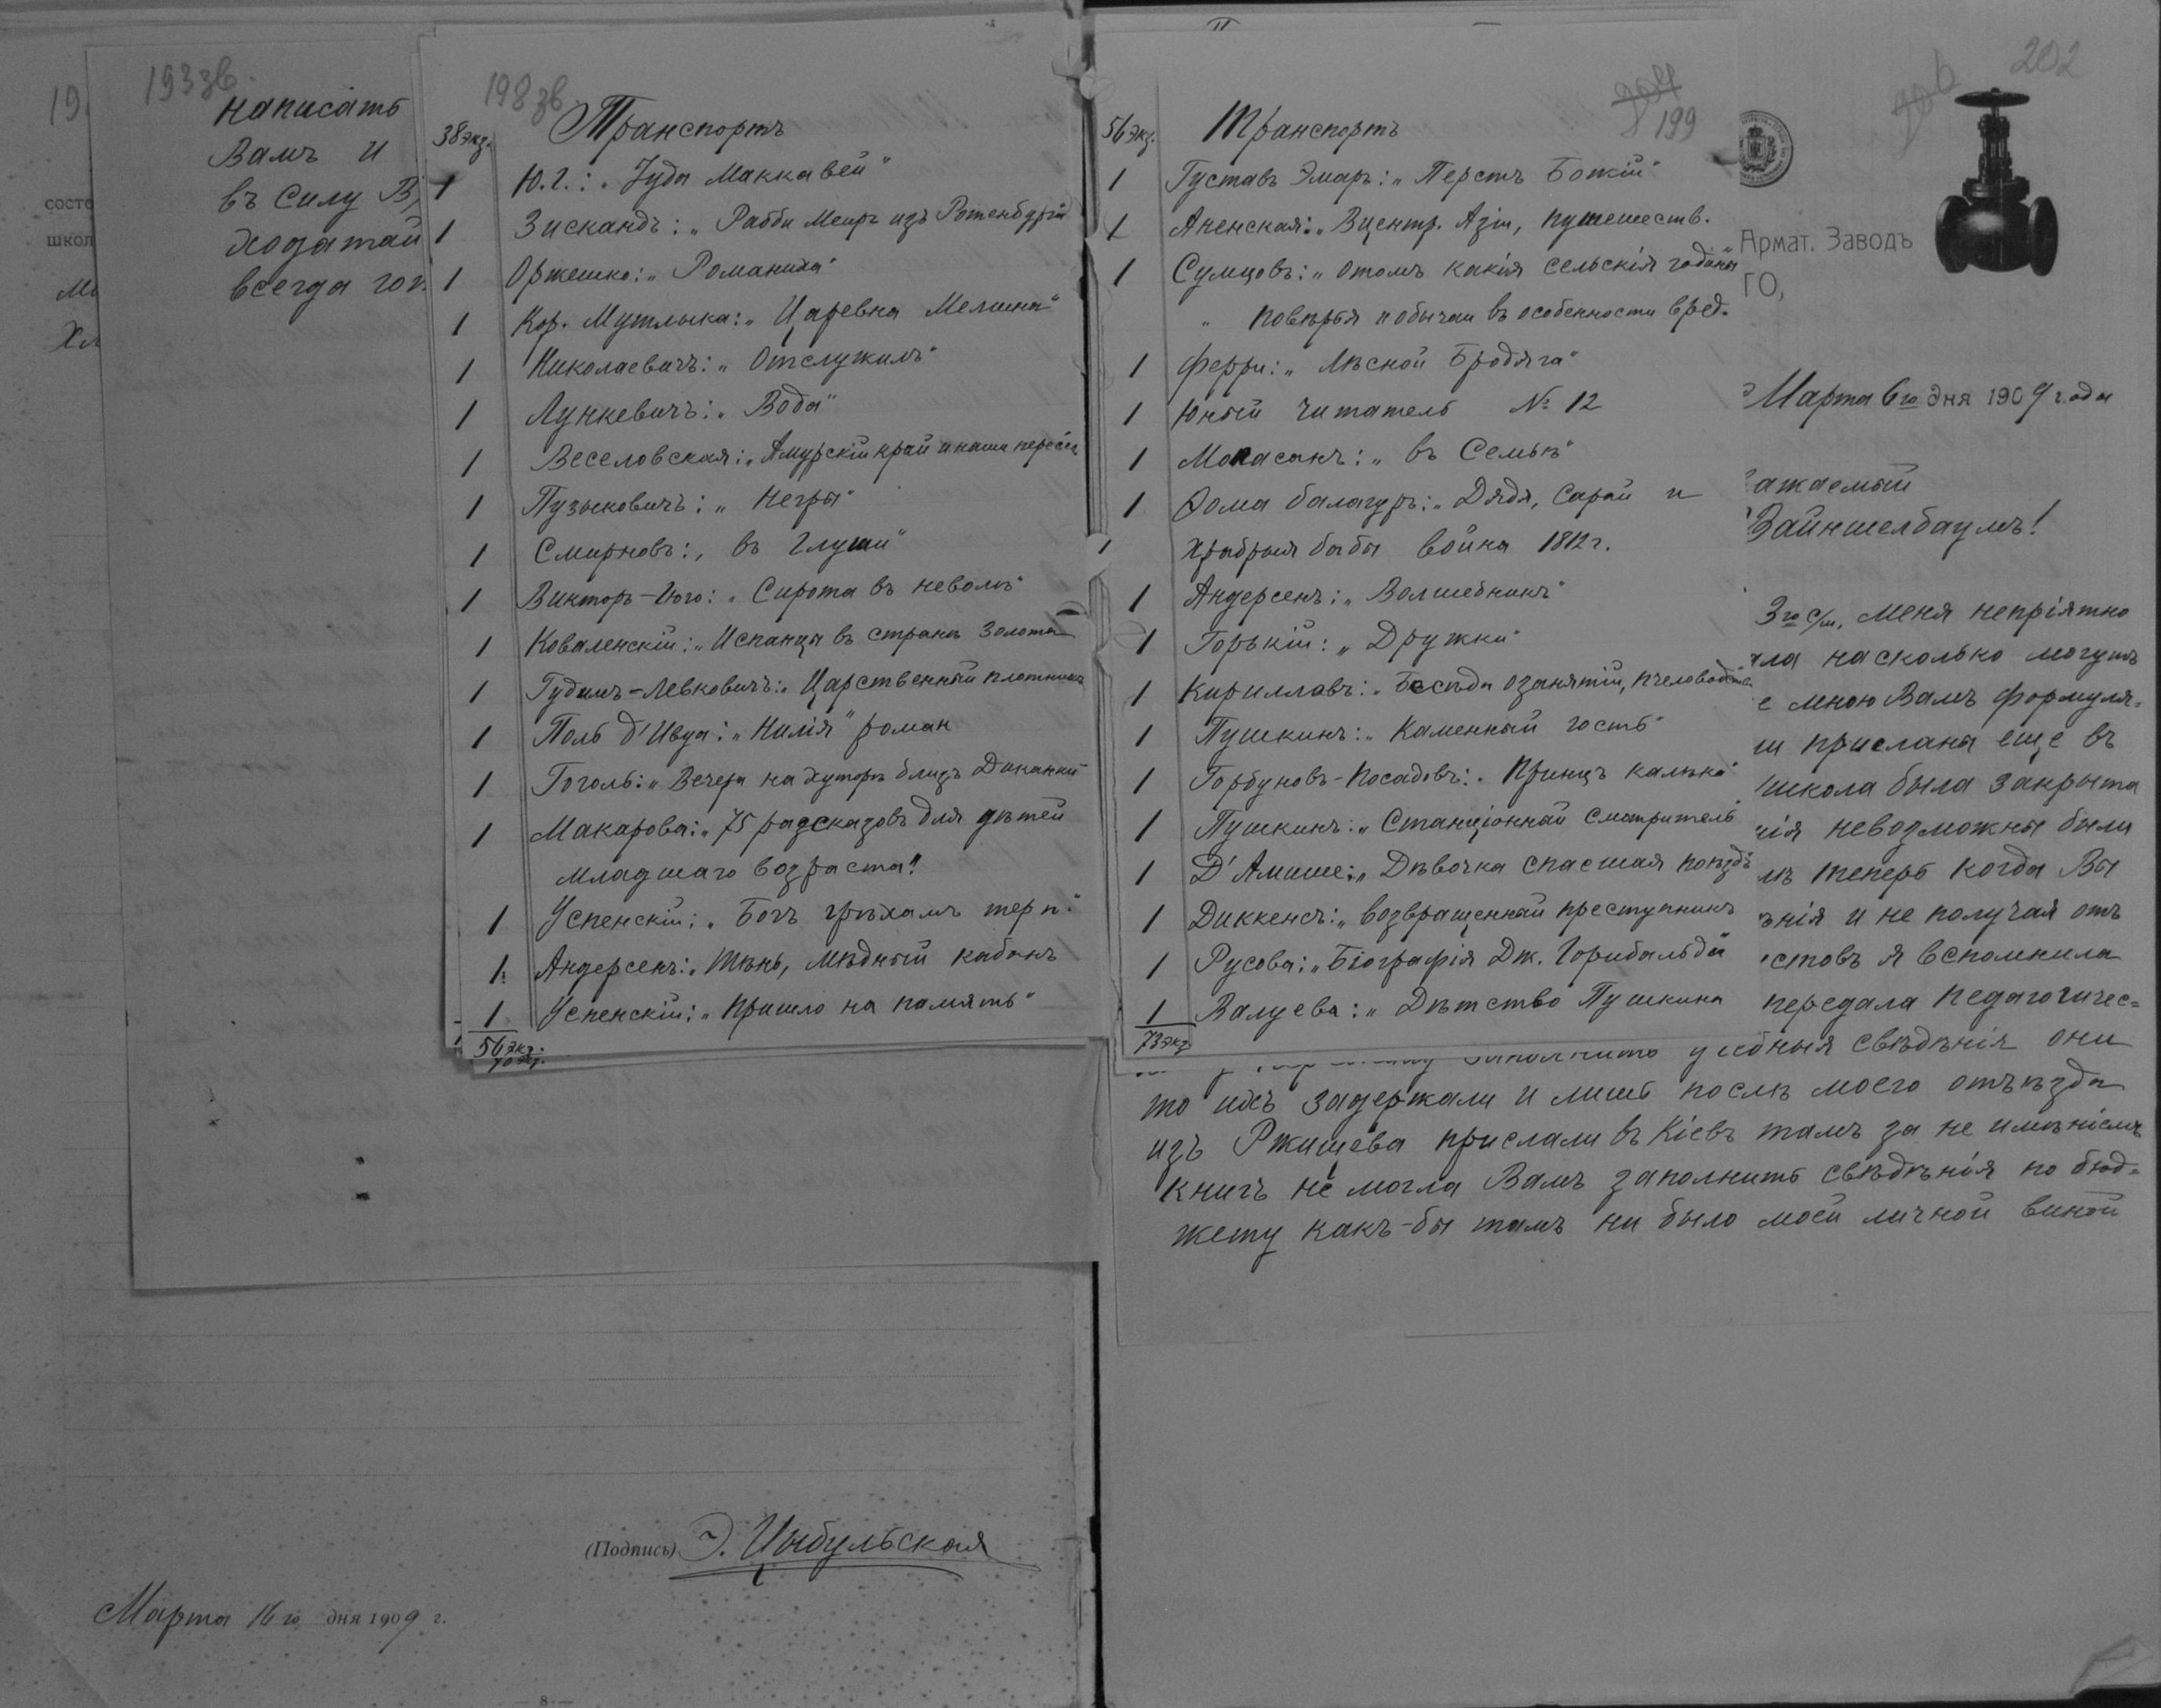 193 зв.
написать
Вамъ и
въ силу В
ходатай
всегда гот
состо
школ
198 зв.
38 экз. Транспортъ
1 Ю.Г.: „Іуда Маккавей"
1 Зискандъ: „Рабби Меиръ изъ Ротенбурга
1 Оржешко: „Романиха"
1 Кор. Мутлыка: „Царевна Мелина"
1 Николаевичъ: „Отслужилъ"
1 Лункевичъ: „Вода"
1 Веселовская: „Амурскій край и наши пересел
1 Пузыковичъ: „Негры"
1 Смирновъ: „въ Глуши"
1 Викторъ-Гюго: „Сирота въ неволѣ"
1 Коваленскій: „Испанцы въ странѣ золота
1 Гудимъ-Левковичъ: „Царственный плотникъ
1 Поль д'Ивуа: „Нилія" роман
1 Гоголь: „Вечера на хуторѣ близъ Диканки
1 Макарова: „75 разсказовъ для дѣтей
младшаго возраста"
1 Успенскій: „Богъ грѣхамъ терп."
1 Андерсенъ: „Тѣнь, мѣдный кабанъ
1 Успенскій: „Пришло на память"
56 экз.
70 экз.
(Подпись) Э. Цыбульская
Марта 16го дня 1909 г.
— 8 —
199
56 экз. Транспортъ
1 Густавъ Эмаръ: „Перстъ Божій"
1 Аненская: „Вцентр. Азіи, путешеств.
1 Сумцовъ: „Отомъ какія сельскія годины
" повѣрья и обычаи въ особенности вред.
1 Ферри: „Лѣсной Бродяга"
1 Юный читатель № 12
1 Мопасанъ: „въ Семьѣ"
1 Фома балагуръ: „Дядя, Сарай и
1 храбрыя бабы война 1812 г.
1 Андерсенъ: „Волшебникъ"
1 Горькій: „Дружки"
1 Кириллавъ: „Бесѣды озанятіи, пчеловодств
1 Пушкинъ: „Каменный гость"
1 Горбуновъ-Посадовъ: „Принцъ калѣка"
1 Пушкинъ: „Станціонный смотритель
1 Д'Амише: „Дѣвочка спасшая поѣздъ
1 Диккенсъ: „возвращенный преступникъ
1 Русова: „Біографія Дж. Горибальди
1 Валуева: „Дѣтство Пушкина
73 экз.
202
Армат. Заводъ
ГО,
Марта 6го дня 1909 года
ажаемый
Зайншелбаумъ!
3го с/м, меня непріятно
ала насколько могутъ
е мною Вамъ формуля-
и прислана еще въ
школа была закрыта
нія невозможны были
мъ теперь когда Вы
ѣнія и не получая отъ
стовъ я вспомнила
передала педагогичес-
заполнить учебныя свѣдѣнія они
то ихъ задержали и лишь послѣ моего отъѣзда
изъ Ржищева прислали въ Кіевъ тамъ за не имѣніемъ
книгъ не могла Вамъ заполнить свѣдѣнія по бюд-
жету какъ-бы тамъ ни было моей личной виной